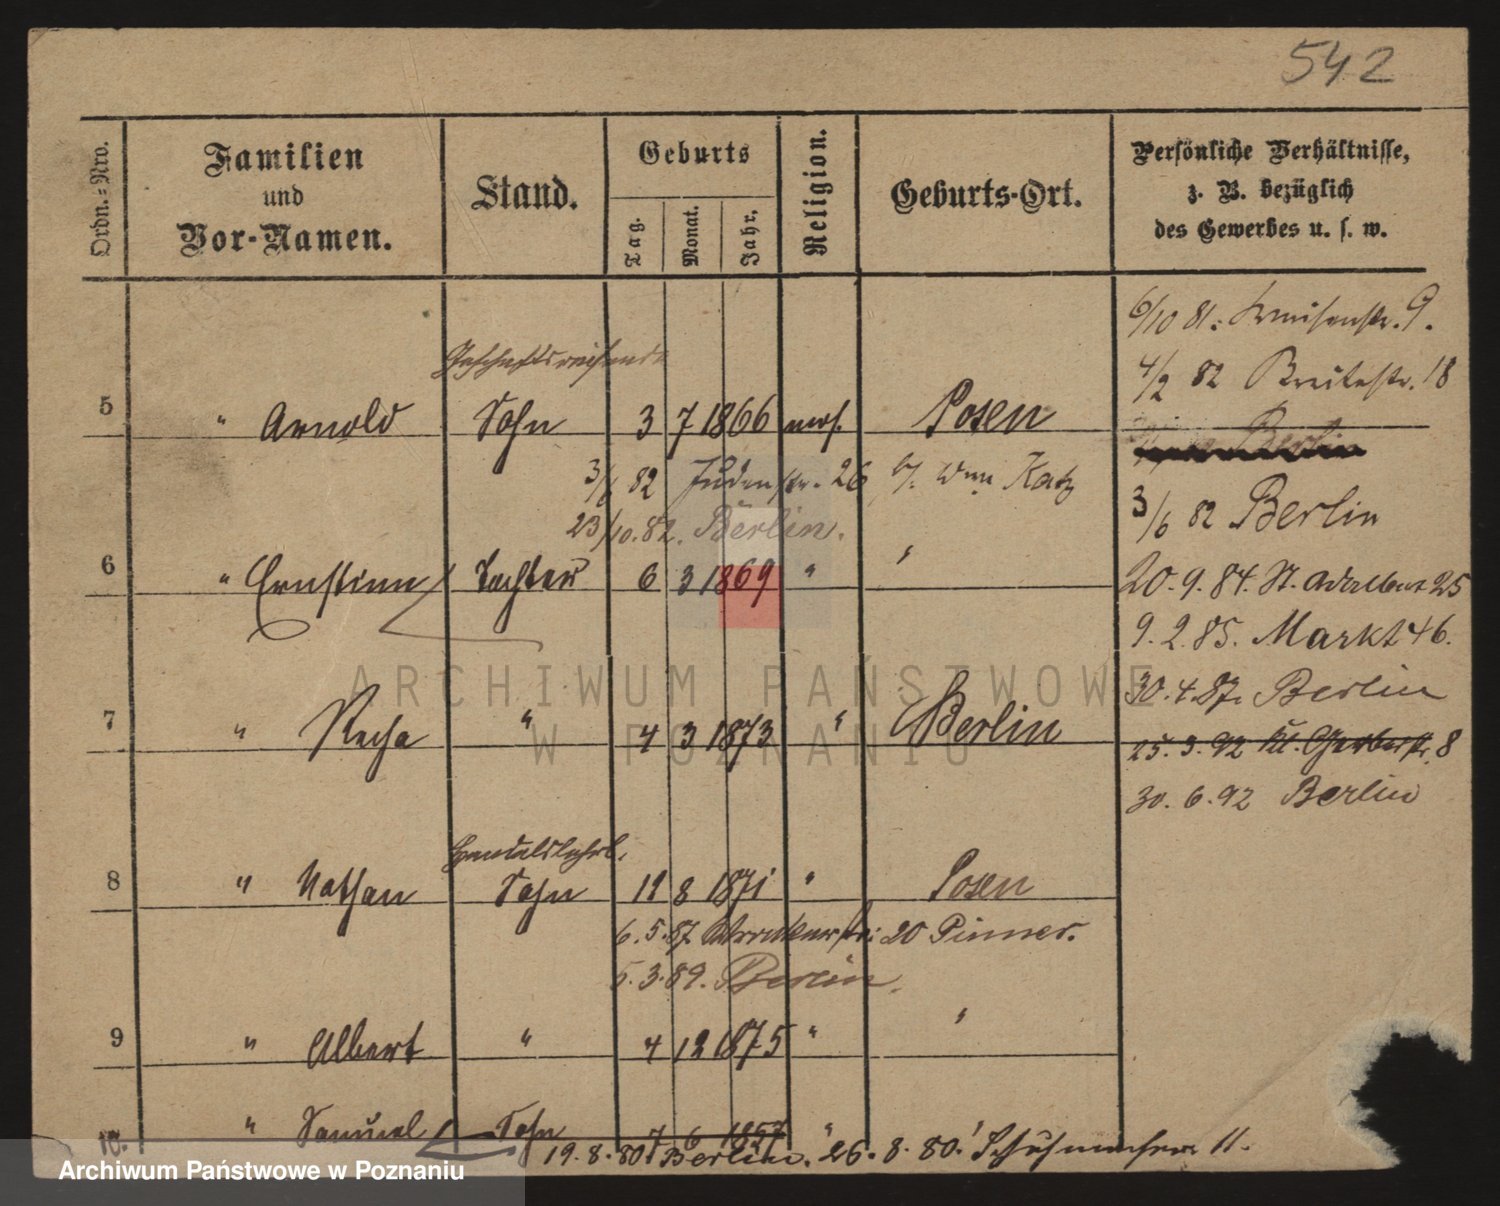 542
Ordn.-Nro.
Familien
und
Vor-Namen.
Stand.
Geburts
Tag.
Monat.
Jahr.
Religion.
Geburts-Ort.
Persönliche Verhältnisse,
z. B. bezüglich
des Gewerbes u. s. w.
6/10 81.
str. 9.
Geschäftsreisende
4/2 82 Breitestr. 18
5 " Arnold Sohn 3 7 1866 mos. Posen
Berlin
3/6 82 Judenstr. 26 b. Katz
3/6 82 Berlin
23/10.82. Berlin.
6 " Ernstine Tochter 6 3 1869 " "
20.9.84. St. Adalbert 25
9.2.85. Markt 46.
30.4.87. Berlin
7 " Recha " 4 3 1873 " Berlin
25.3.92 Kl. Gerberstr. 8
30.6.92 Berlin
Handelslehrl.
8 " Nathan Sohn 11 8 1871 " Posen
6.5.87 20 Pinner.
5.3.89. Berlin.
9 " Albert " 4 12 1875 " "
10. " Samuel Sohn 7 6 1857 " "
19.8.80 Berlin. 26.8.80. Schuhmacher 11.
ARCHIWUM PAŃSTWOWE
W POZNANIU
Archiwum Państwowe w Poznaniu